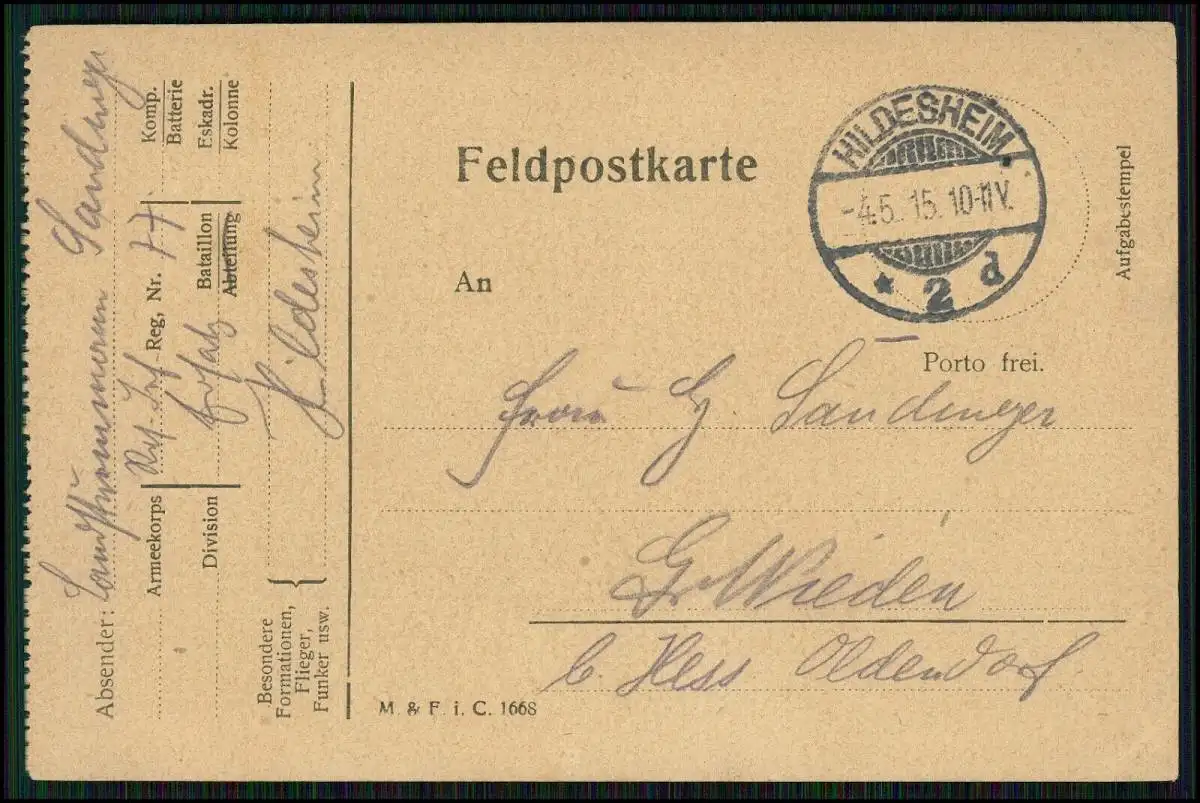 Feldpostkarte
HILDESHEIM.
-4.5. 15. 10-11 V.
* 2 d
Aufgabestempel
An
Porto frei.
Frau G. Sandmeyer
Gr Wieden
b. Hess Oldendorf
M. & F. i. C. 1668
Absender: Landsturmmann Sandmeyer
Komp.
Batterie
Eskadr.
Kolonne
Res. Inf Reg, Nr. 77
Armeekorps
Ersatz Bataillon
Abteilung
Division
Hildesheim.
Besondere
Formationen,
Flieger,
Funker usw.